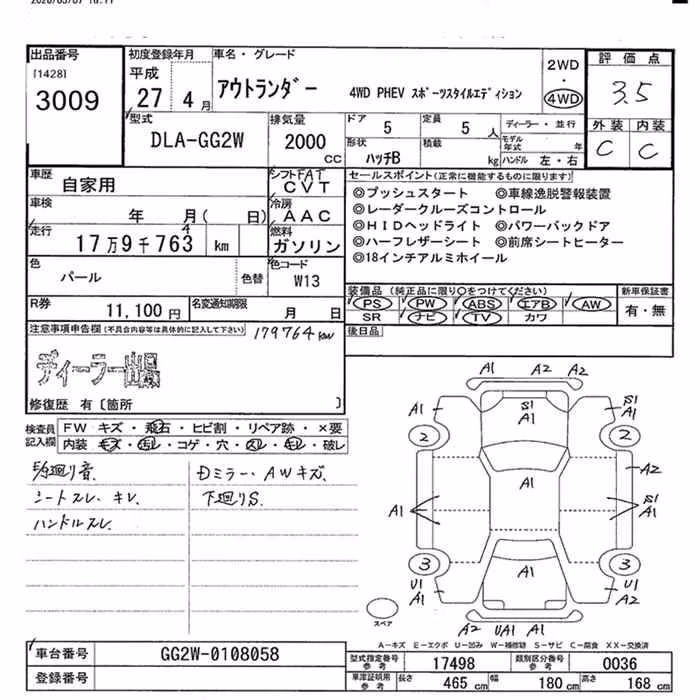 出品番号
[1428]
3009
初度登録年月
平成
27 4 月
車名・グレード
アウトランダー
4WD PHEV スポーツスタイルエディション
2WD
・
4WD
評価点
3.5
外装 内装
C C
型式
DLA-GG2W
排気量
2000
cc
ドア
5
定員
5 人
ディーラー・並行
形状
ハッチB
積載
kg
モデル年式 年
ハンドル 左・右
車歴
自家用
シフト FAT
CVT
車検
年 月( 日)
冷房
AAC
走行
17万9千763 km
4
燃料
ガソリン
色
パール
色替
色コード
W13
R券
11,100 円
名変通知期限
月 日
セールスポイント(正常に機能するものに限ります)
◎プッシュスタート ◎車線逸脱警報装置
◎レーダークルーズコントロール
◎HIDヘッドライト ◎パワーバックドア
◎ハーフレザーシート ◎前席シートヒーター
◎18インチアルミホイール
装備品(純正品に限り○をつけてください)
新車保証書
PS PW ABS エアB AW
有・無
SR ナビ TV カワ
後日品
注意事項申告欄(不具合内容等は具体的に記入して下さい)
179764 km
ディーラー出品
修復歴 有〔箇所 〕
検査員記入欄
FW キズ・飛石・ヒビ割・リペア跡・×要
内装・キズ・汚レ・コゲ・穴・スレ・キレ・破レ
廻り音
シートスレ、キレ、
ハンドルスレ、
Dミラー・AWキズ、
下廻りS、
A1 A2 A2
A1
S1
A1
S1
A1
2
2
A2
A1
A1
S1
A1
3
3
A1
U1
A1
U1
A2
A2 UA1 A1
スペア
A-キズ E-エクボ U-凹み W-補修跡 S-サビ C-腐食 XX-交換済
車台番号
GG2W-0108058
登録番号
型式指定番号
参考
17498
類別区分番号
参考
0036
車庫証明用
参考
長さ
465 cm
幅
180 cm
高さ
168 cm